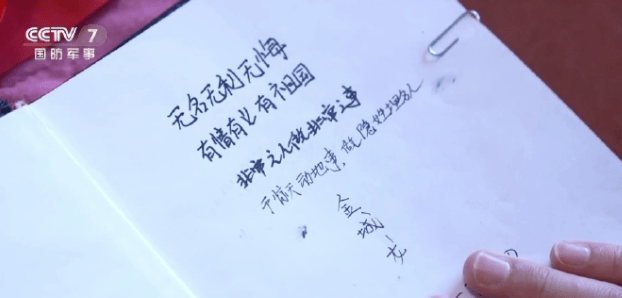 CCTV 7
国防军事
无名无利无悔
有情有义有祖国
非常之人做非常之事
干惊天动地事，做隐姓埋名人
金城